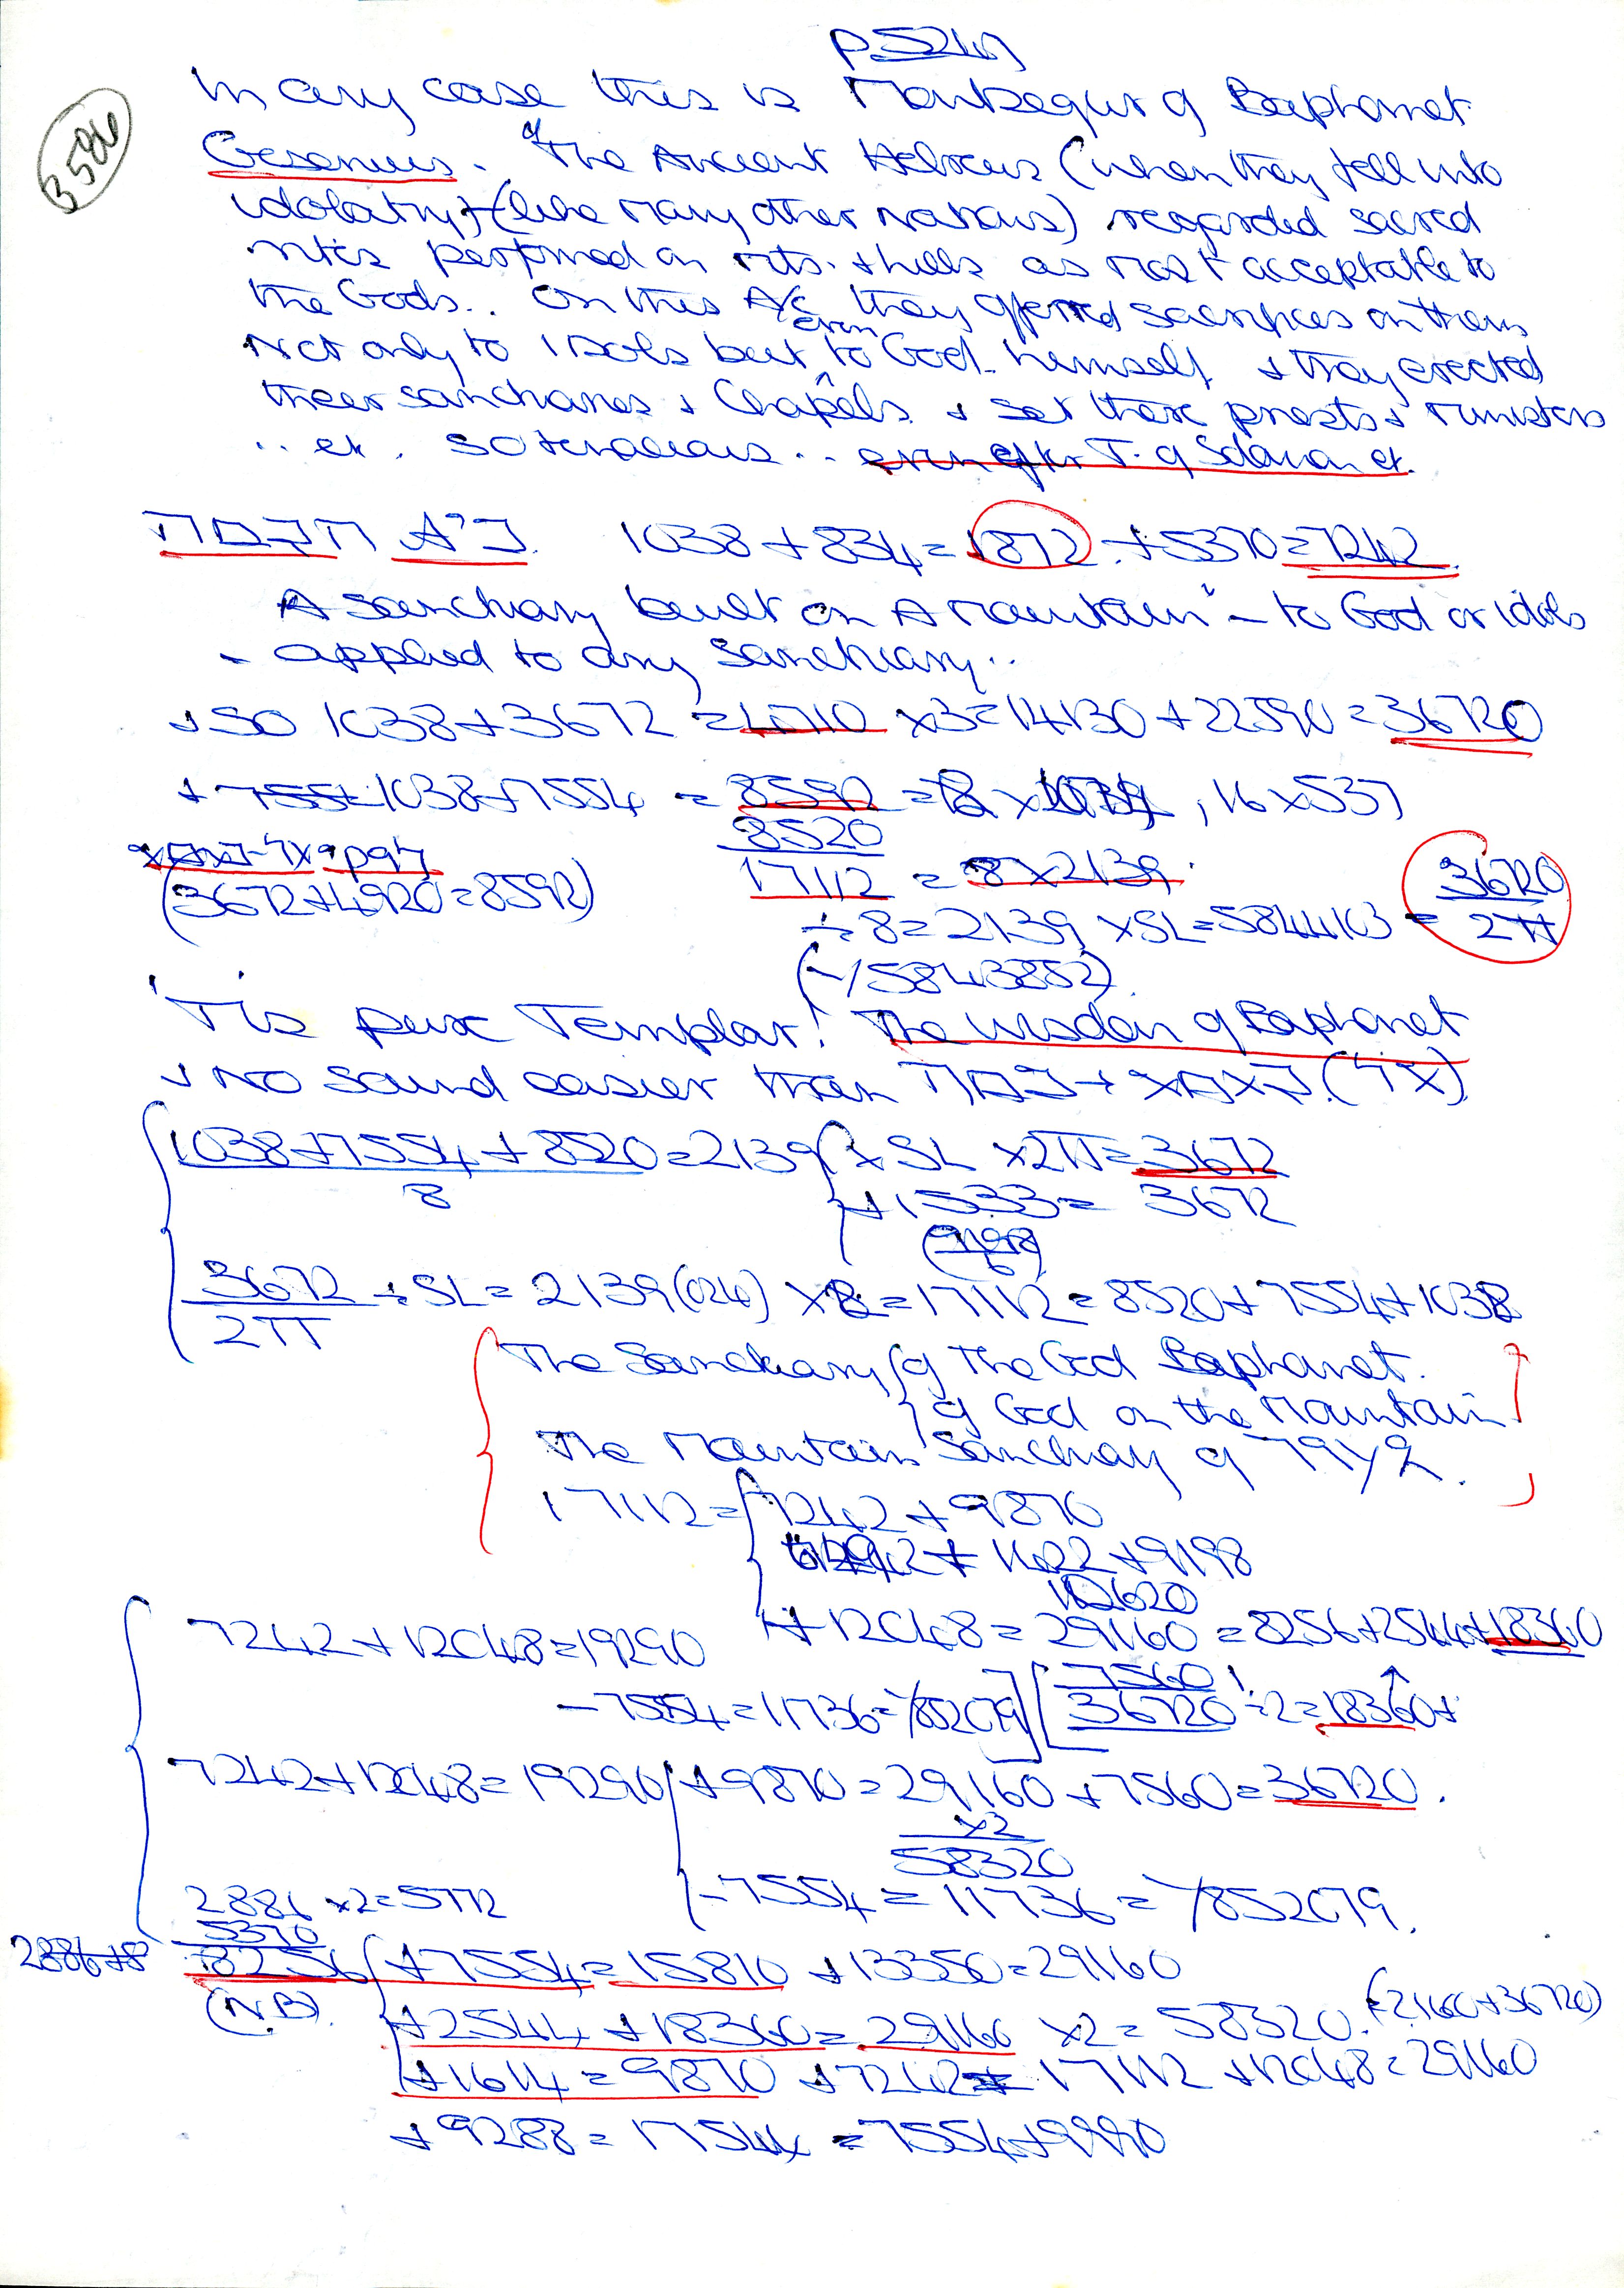 p524(7)
3586
In any case this is Montsegur of Baphomet
Gesenius. "The Ancient Hebrews (when they fell into
idolatry) (like many other nations) regarded sacred
rites performed on mts. + hills as most acceptable to
the Gods.. On this A/c they offered sacrifices on them
not only to idols but even to God himself + they erected
their sanctuaries + Chapels + set there priests + ministers
.. et. so tenacious .. even after T. of Solomon et.
1038 + 834 = 1872 . + 5370 = 7242
A sanctuary built on A mountain" – to God or idols
– applied to any sanctuary..
+ so 1038 + 3672 = 4710 x3 = 14130 + 22590 = 36720
+ 1038 + 7554 = 8592 = 8 x 1074, 16 x 537
8520
(3672 + 4920 = 8592)
17112 = 8 x 2139.
÷ 8 = 2139 x SL = 5844103 = 36720/2π
(-/5843852)
'Tis pure Templar! The wisdom of Baphomet
+ no sound easier than
1038 + 7554 + 8520 = 2139 { x SL x 2π = 3672
8
+ 1533 = 3672
(9198/6)
3672/2π ÷ SL = 2139(024) x 8 = 17112 = 8520 + 7554 + 1038
The Sanctuary { of The God Baphomet.
of God on the Mountain
The Mountain Sanctuary of
17112 = { 7242 + 9870
+ 1422 + 9198
10620
7242 + 12048 = 19290
+ 12048 = 29160 = 8256 + 2544 + 18360
– 7554 = 11736 = -/852079 ] [ 7560 !
36720 ÷ 2 = 18360 +
7242 + 12048 = 19290 { + 9870 = 29160 + 7560 = 36720.
x2
58320
– 7554 = 11736 = -/852079.
2886 x2 = 5772
5370
8256 { + 7554 = 15810 + 13350 = 29160
(N.B)
+ 2544 + 18360 = 29160 x2 = 58320. (21600 + 36720)
+ 1614 = 9870 + 7242 = 17112 + 12048 = 29160
+ 9288 = 17544 = 7554 + 9990